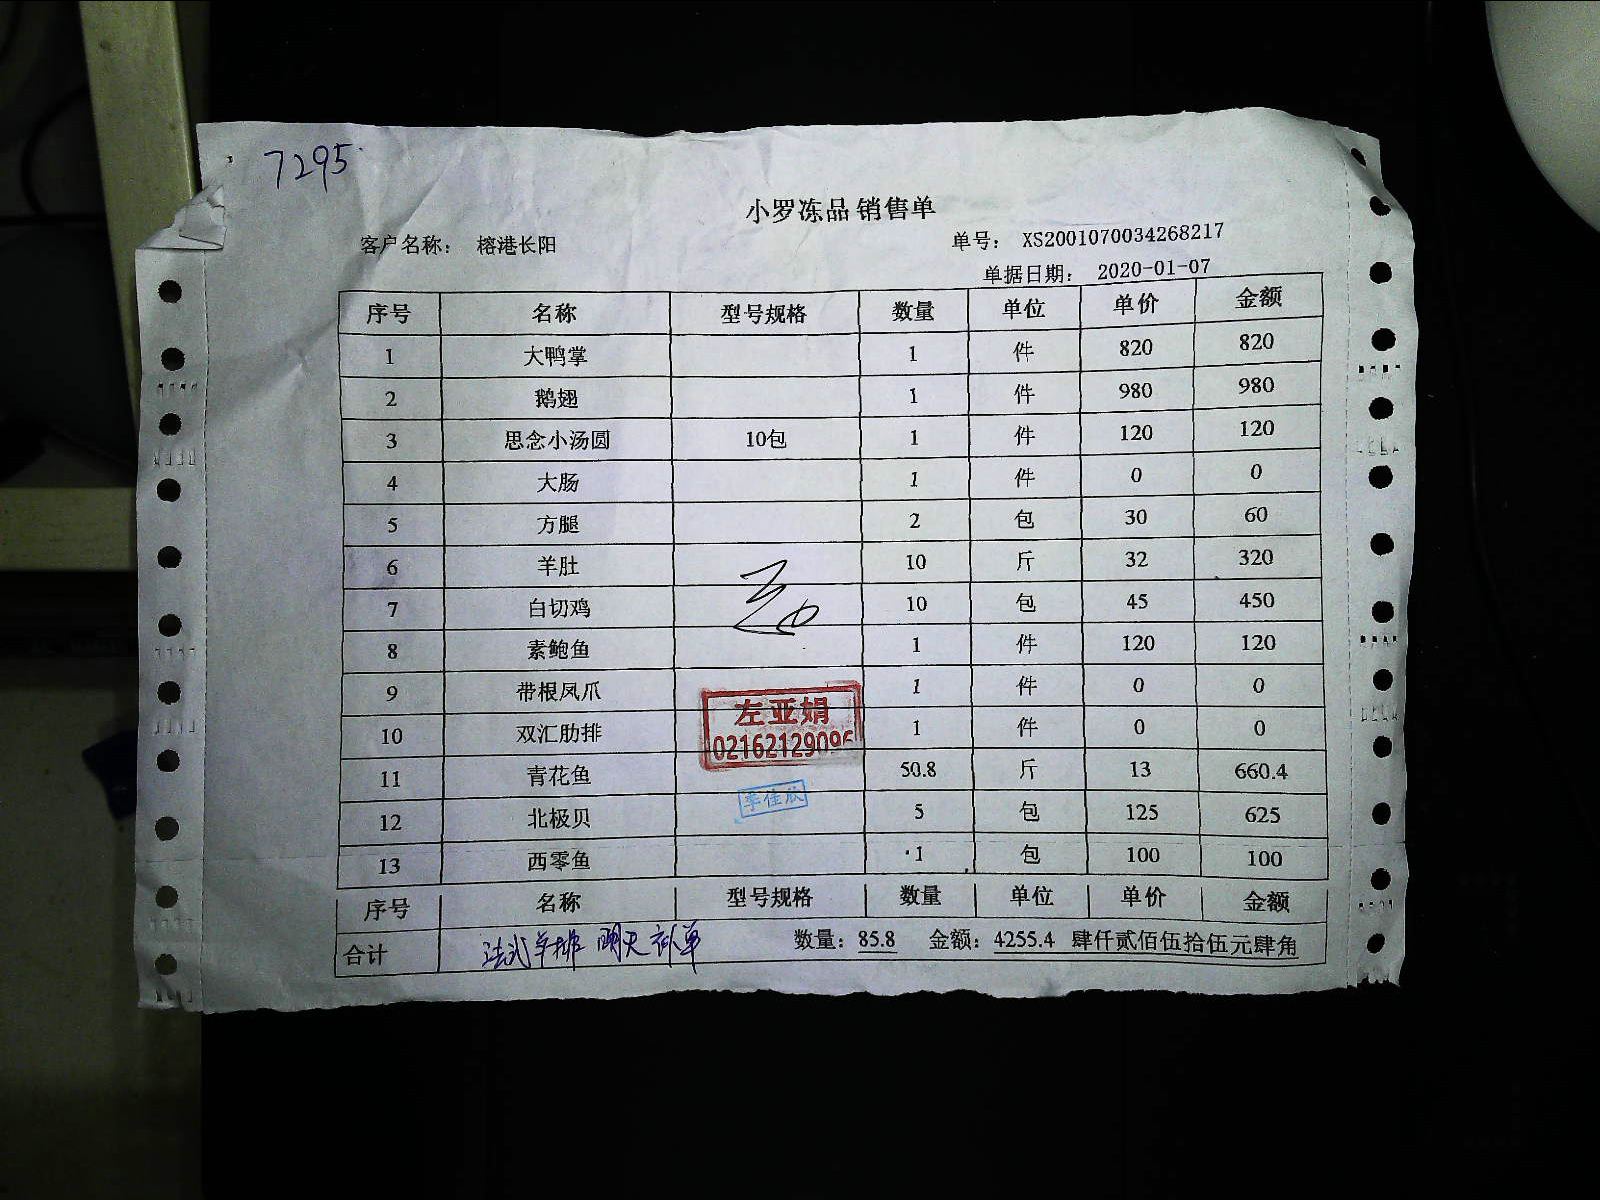 7295
小罗冻品 销售单
客户名称： 榕港长阳 单号： XS2001070034268217
单据日期： 2020-01-07
序号 名称 型号规格 数量 单位 单价 金额
1 大鸭掌 1 件 820 820
2 鹅翅 1 件 980 980
3 思念小汤圆 10包 1 件 120 120
4 大肠 1 件 0 0
5 方腿 2 包 30 60
6 羊肚 10 斤 32 320
7 白切鸡 10 包 45 450
8 素鲍鱼 1 件 120 120
9 带根凤爪 1 件 0 0
10 双汇肋排 1 件 0 0
左亚娟
02162129096
11 青花鱼 50.8 斤 13 660.4
季佳欣
12 北极贝 5 包 125 625
13 西零鱼 1 包 100 100
序号 名称 型号规格 数量 单位 单价 金额
合计 法式羊排 明天补单 数量：85.8 金额：4255.4 肆仟贰佰伍拾伍元肆角